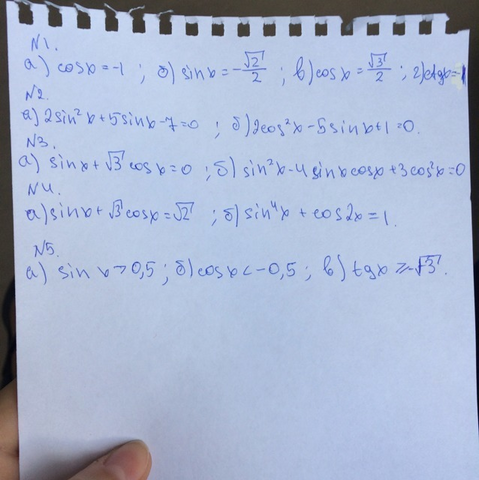 N1.
а) cosx=-1 ; б) sinx=-√2/2 ; в) cosx=√3/2 ; г) ctgx=-1
N2.
а) 2sin²x+5sinx-7=0 ; б) 2cos²x-5sinx+1=0.
N3.
а) sinx+√3cosx=0 ; б) sin²x-4sinxcosx+3cos²x=0
N4.
а) sinx+√3cosx=√2 ; б) sin⁴x+cos2x=1.
N5.
а) sinx>0,5 ; б) cosx<-0,5 ; в) tgx≥-√3.